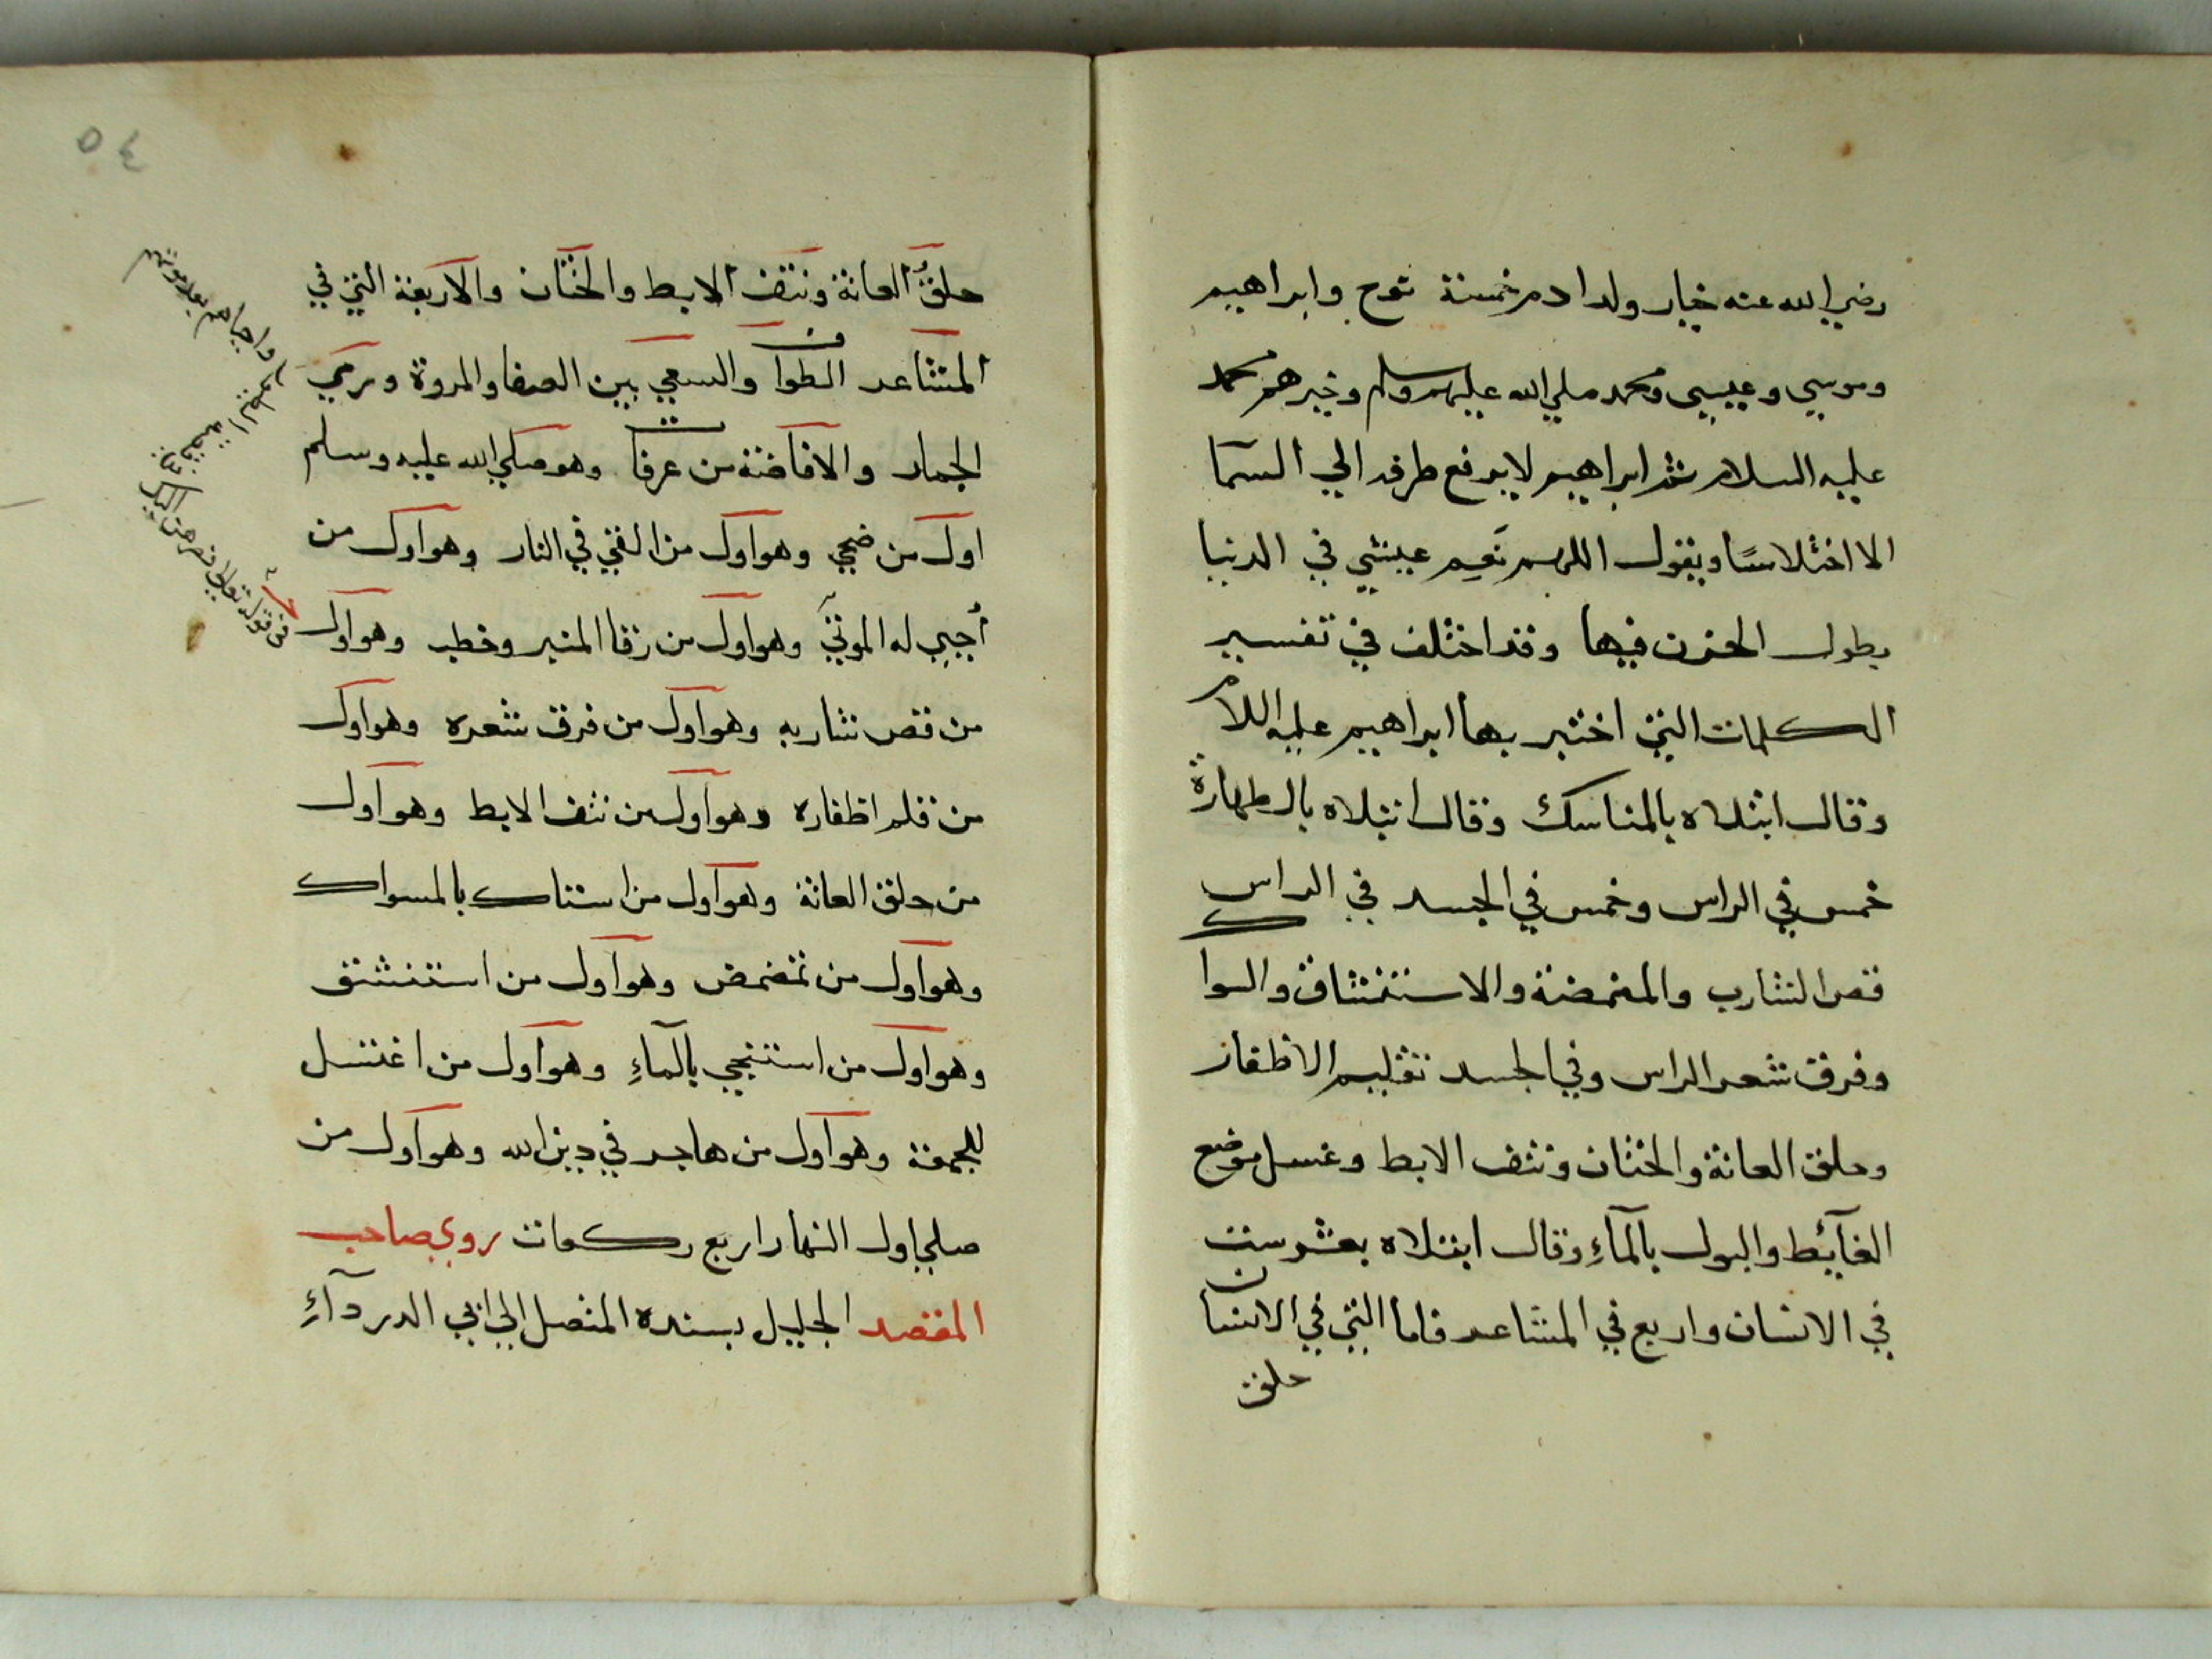 رضي الله عنه خيار ولد ادم خمسة نوح وابراهيم
وموسي وعيسي ومحمد صلي الله عليهم وسلم وخيرهم محمد
عليه السلام ثم ابراهيم لا يرفع طرفه الي السما
الا اختلاسًا ويقول اللهم نَعِم عيشي في الدنيا
بطول الحزن فيها وقد اختلف في تفسير
الكلمات التي اختبر بها ابراهيم عليه اللام
وقال ابتلاه بالمناسك وقال ابتلاه بالطهارة
خمس في الراس وخمس في الجسد في الراس
قص الشارب والمضمضة والاستنشاق والسواك
وفرق شعر الراس وفي الجسد تقليم الاظفار
وحلق العانة والختان ونتف الابط وغسل موضع
الغآئط والبول بالمآءِ وقال ابتلاه بعشر ست
في الانسان واربع في المشاعر فاما التي في الانسان
حلق
٥٤
حلقُ العانة ونتف الابط والختان والاربعة التي في
المشاعر الطواف والسعي بين الصفا والمروة ورمي
الجمار والافاضة من عرفات وهو صلي الله عليه وسلم
اول من ضحي وهو اول من القي في النار وهو اول من
أُجيي له الموتي وهو اول من رقا المنبر وخطب وهو اول
من قص شاربه وهو اول من فرق شعره وهو اول
من قلم اظفاره وهو اول من نتف الابط وهو اول
من حلق العانة وهو اول من استاك بالمسواك
وهو اول من تمضمض وهو اول من استنشق
وهو اول من استنجي بالمآءِ وهو اول من اغتسل
للجمعة وهو اول من هاجر في دين الله وهو اول من
صلي اول النهار اربع ركعات روي صاحب
المقصد الجليل بسنده المتصل الي ابي الدردآءِ
في قوله تعالي فصرهن اليك